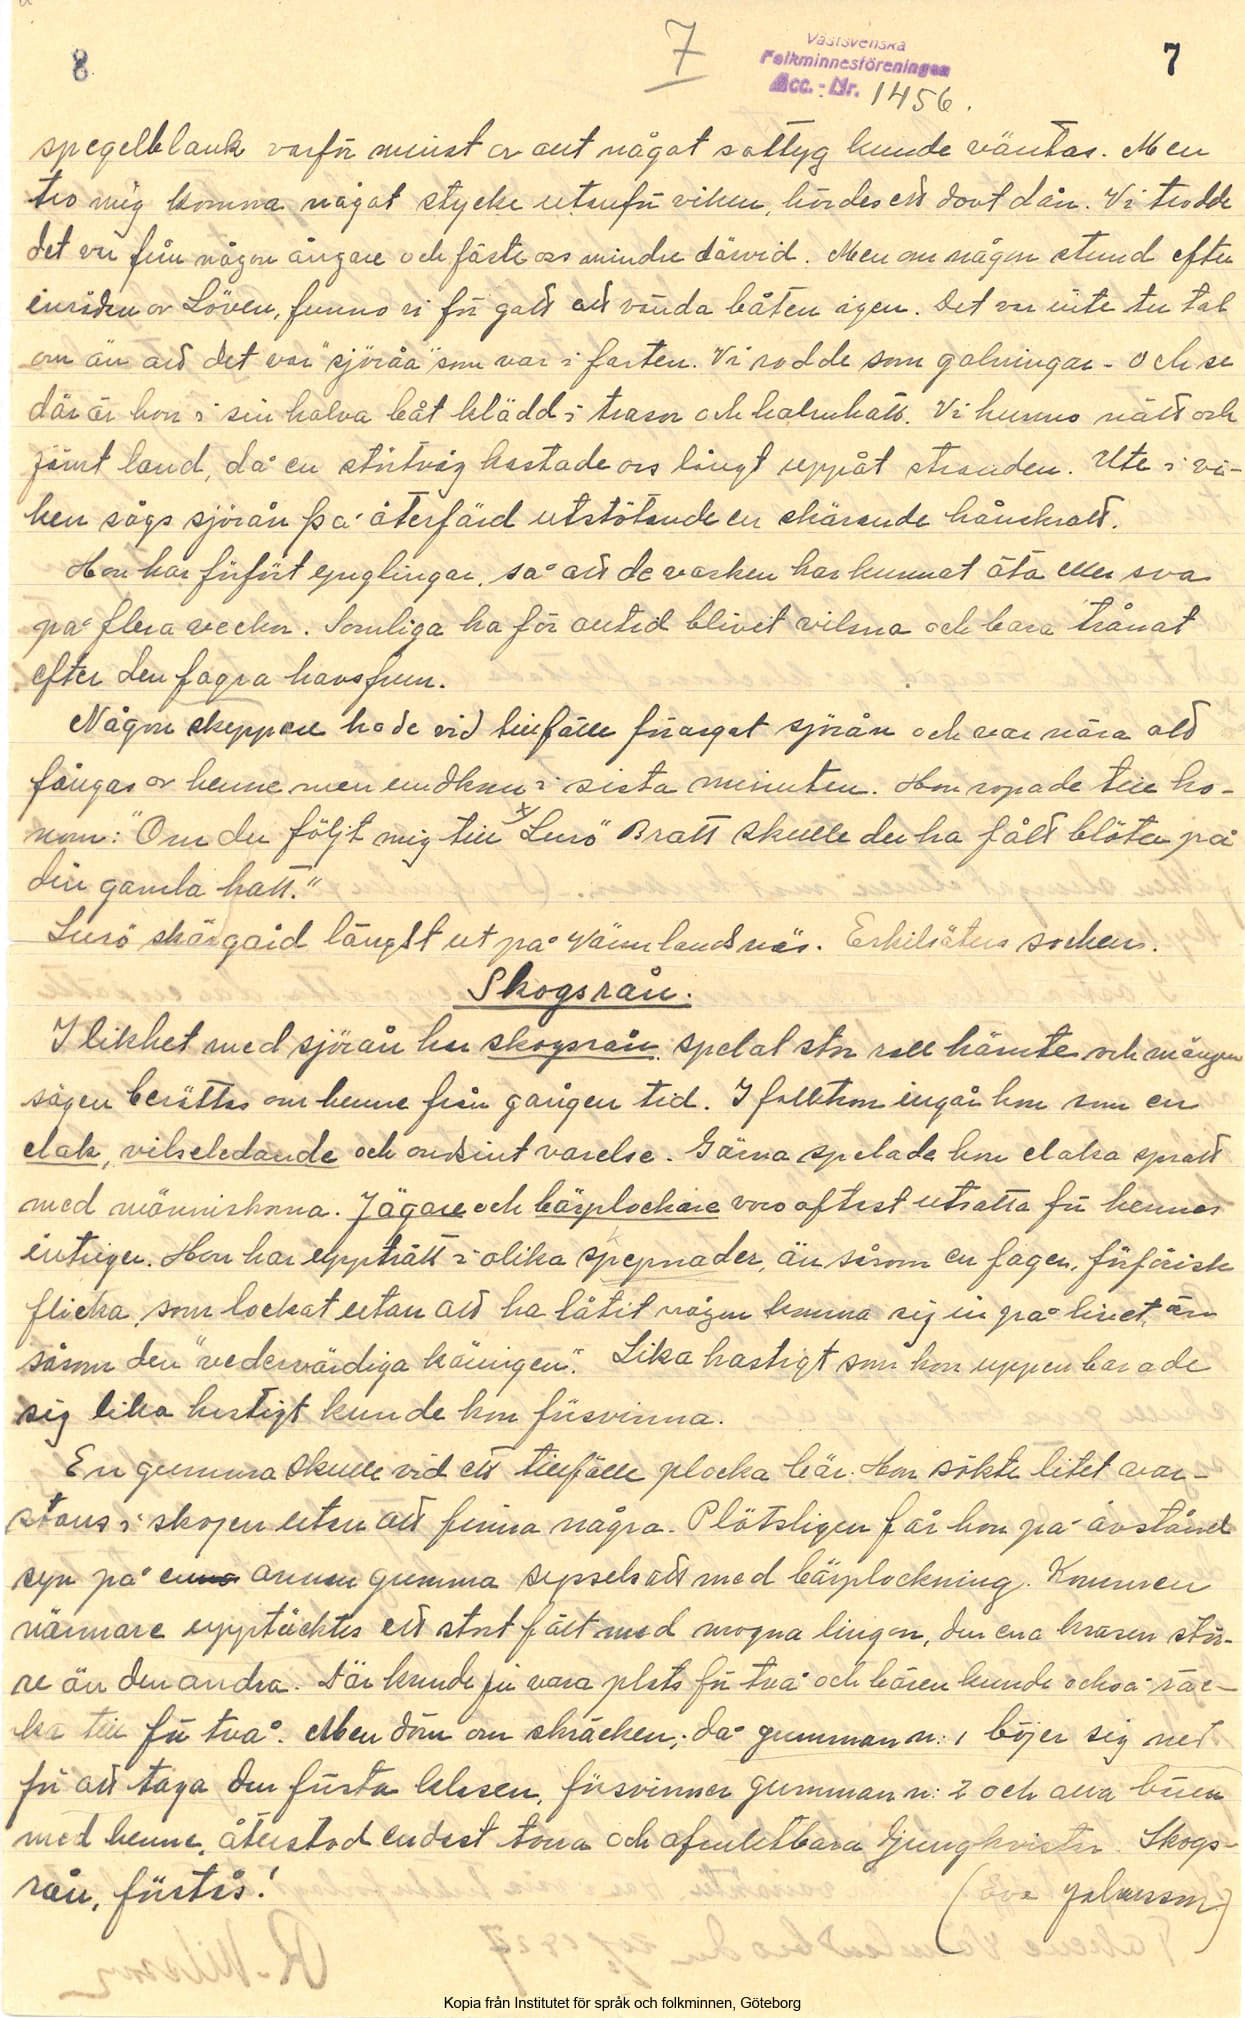 8
7
7
Västsvenska
Folkminnesföreningen
Acc. - Nr. 1456.
spegelblank varför minst av allt något sattyg kunde väntas. Men
tro mig komna något stycke utanför viken, hördes ett dovt dån. Vi trodde
det var från någon ångare och fäste oss mindre därvid. Men om någon stund efter
av Löven, funno vi för gott att vända båten igen. Det var inte tu tal
om än att det var "sjöråa" som var i farten. Vi rodde som galningar - och se
där är hon i sin halva båt klädd i trasor och halmhatt. Vi hunno nätt och
jämt land, då en störtvåg kastade oss långt uppåt stranden. Ute i vi-
ken sågs sjörån på återfärd utstötande en skärande hånskratt.
Hon har förfört ynglingar, så att de varken har kunnat äta eller sova
på flera veckor. Somliga ha för alltid blivit vilsna och bara trånat
efter den fagra havsfrun.
Någon skeppare hade vid tillfälle förargat sjörån och var nära att
fångas av henne men undkom i sista minuten. Hon ropade till ho-
nom: "Om du följt mig till x) Lurö" Bratt skulle du ha fått blöta på
din gamla hatt."
Lurö skärgård längst ut på Värmlandsnäs. Eskilsäters socken.
Skogsrån.
I likhet med sjörån har skogsrån spelat stor roll härute och mången
sägen berättas om henne från gången tid. I folktron ingår hon som en
elak, vilseledande och ondsint varelse. Gärna spelade hon elaka spratt
med människorna. Jägare och bärplockare voro oftast utsatta för hennes
intriger. Hon har uppträtt i olika skepnader, än såsom en fager, förförisk
flicka, som lockat utan att ha låtit någon komma sig in på livet, än
såsom den "vedervärdiga käringen". Lika hastigt som hon uppenbarade
sig lika hastigt kunde hon försvinna.
En gumma skulle vid ett tillfälle plocka bär. Hon sökte litet var-
stans i skogen utan att finna några. Plötsligen får hon på avstånd
syn på annan gumma sysselsatt med bärplockning. Kommen
närmare upptäcktes ett stort fält med mogna lingon, den ena klasen stör-
re än den andra. Där kunde ju vara plats för två och bären kunde också räc-
ka till för två. Men döm om skräcken; då gumman n: 1 böjer sig ned
för att taga den första klasen, försvinner gumman n: 2 och alla bären
med henne, återstod endast torra och ofruktbara ljungkvistar. Skogs-
rån, förstås!
(Eva Johansson)
R. Nilsson
Kopia från Institutet för språk och folkminnen, Göteborg